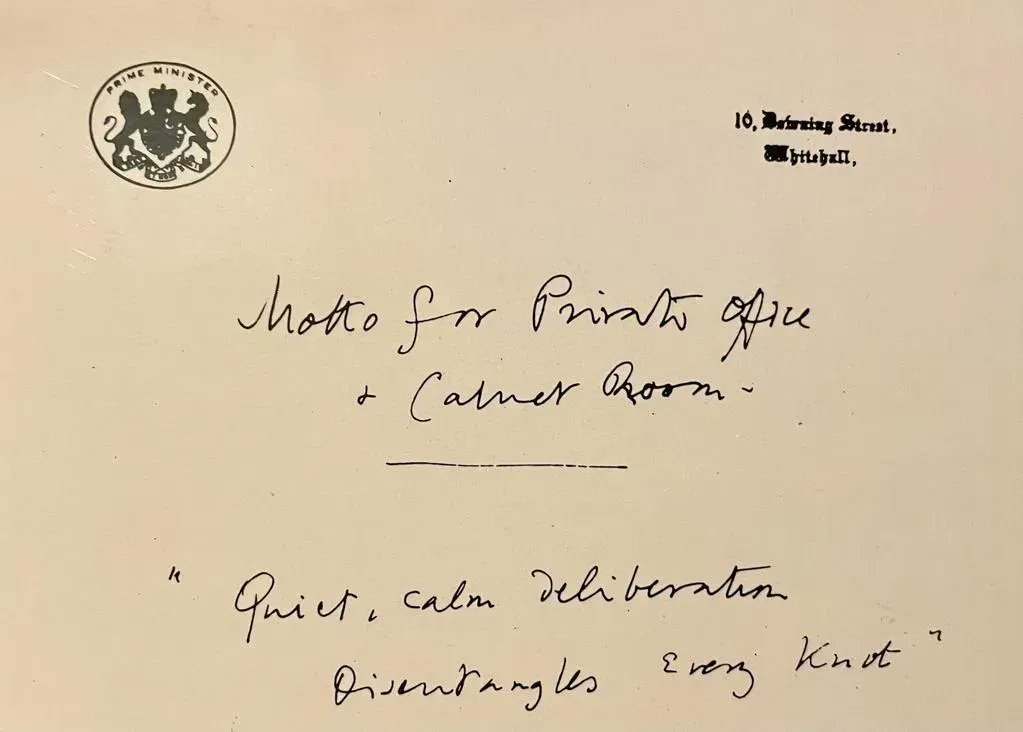 PRIME MINISTER
10, Downing Street,
Whitehall,
Motto for Private Office
+ Cabinet Room -
" Quiet, calm deliberation
Disentangles Every Knot "